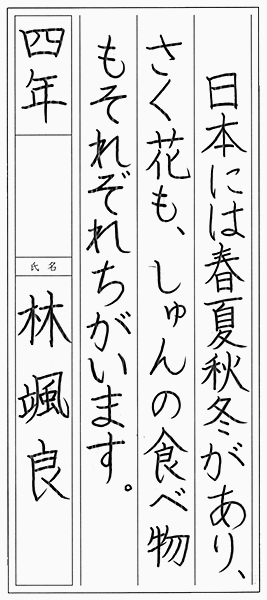 日本には春夏秋冬があり、
さく花も、しゅんの食べ物
もそれぞれちがいます。
四年
氏名
林颯良